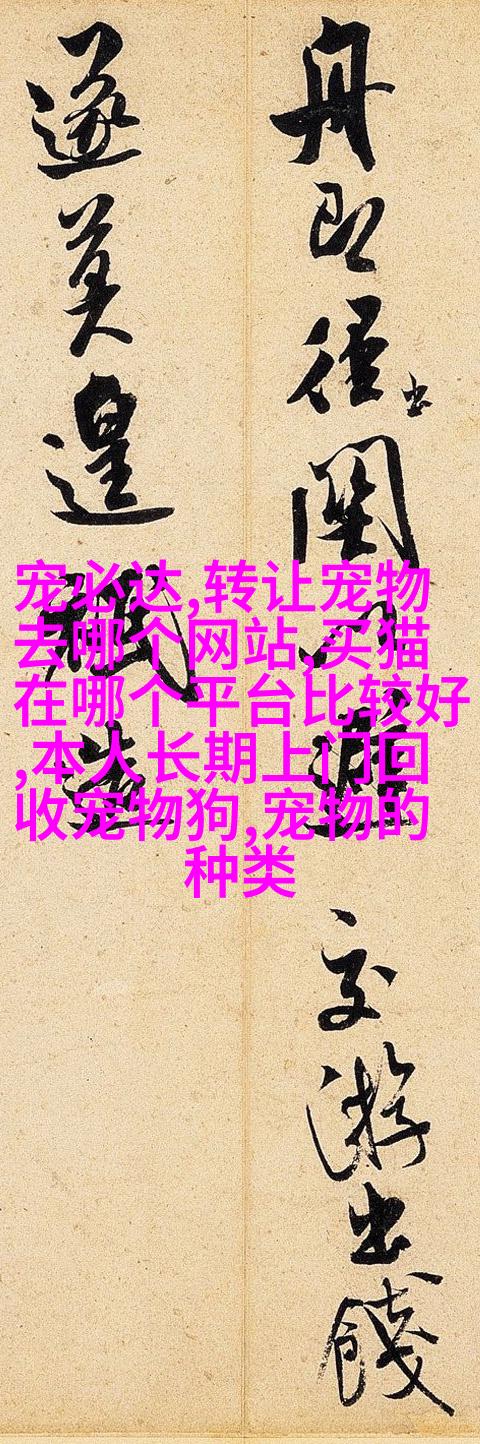 舟即徑出關交游出餞
遂莫遑
宠必达,转让宠物
去哪个网站,买猫
在哪个平台比较好
,本人长期上门回
收宠物狗,宠物的
种类